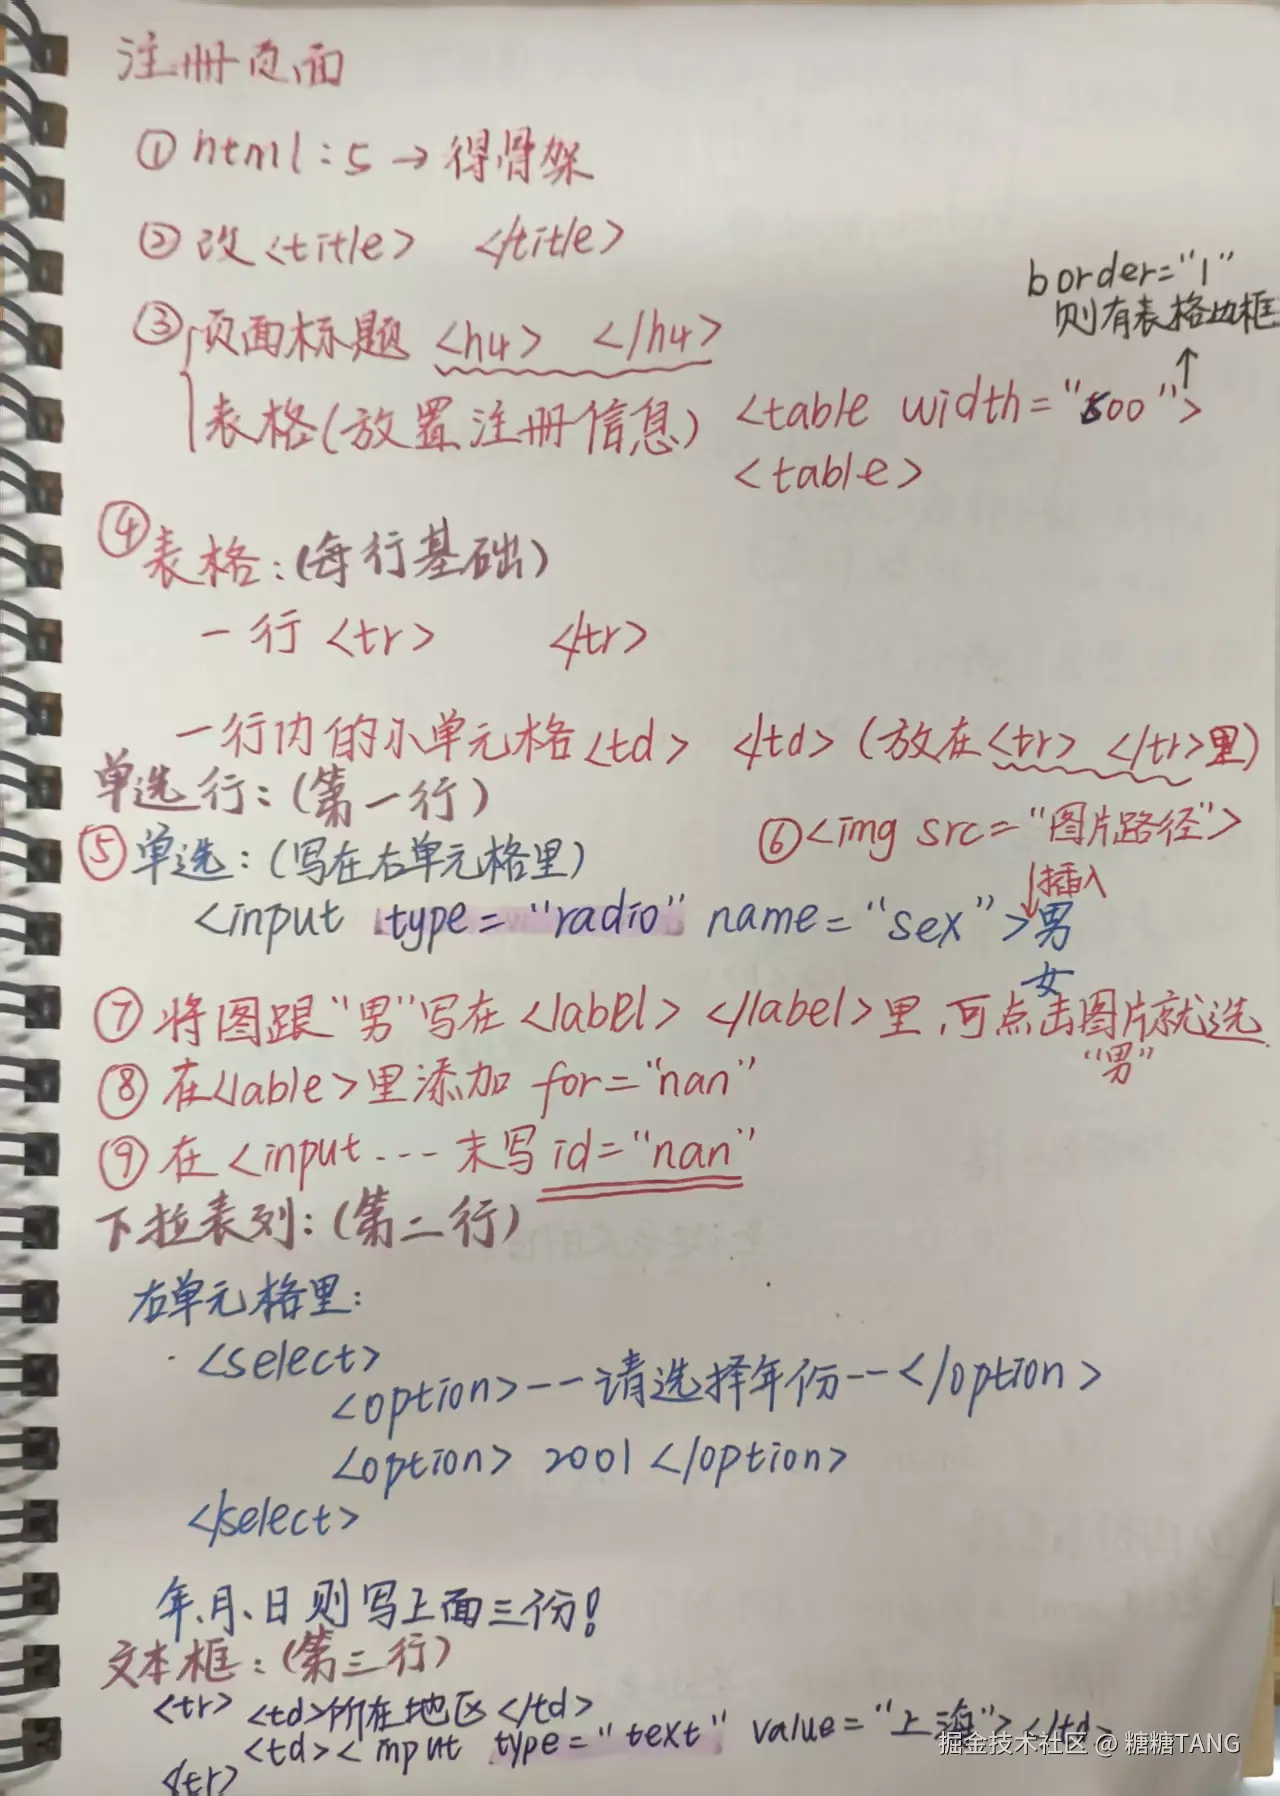 注册页面
① html:5 → 得骨架
② 改<title> </title>
border="1"
则有表格边框
↑
③ 页面标题 <h4> </h4>
表格(放置注册信息) <table width="500">
<table>
④ 表格:(每行基础)
一行 <tr> </tr>
一行内的小单元格<td> </td> (放在<tr> </tr>里)
单选行:(第一行)
⑤ 单选:(写在右单元格里)
⑥ <img src="图片路径">
↓插入
<input type="radio" name="sex">男
女
⑦ 将图跟"男"写在<label> </label>里,可点击图片就选
"男"
⑧ 在<lable>里添加 for="nan"
⑨ 在<input ... 末写 id="nan"
下拉表列:(第二行)
右单元格里:
<select>
<option>--请选择年份--</option>
<option> 2001 </option>
</select>
年、月、日则写上面三份!
文本框:(第三行)
<tr> <td>所在地区</td>
<td>< input type="text" value="上海"></td>
</tr>
掘金技术社区 @ 糖糖TANG